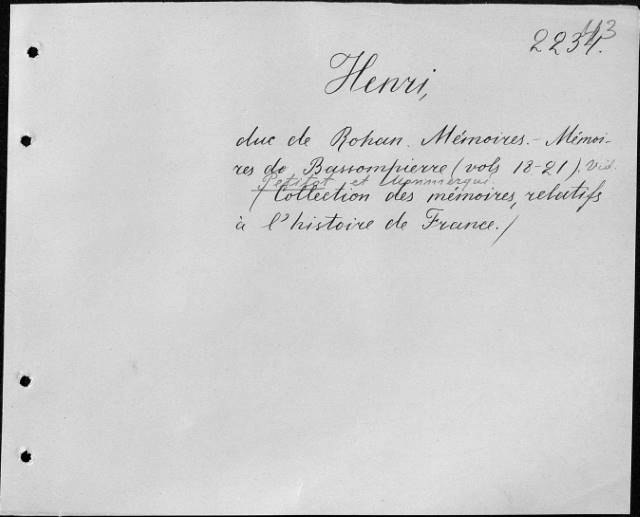 2234.
43
Henri,
duc de Rohan. Mémoires. - Mémoi-
res de Bassompierre (vols 18-21). Vid.
Petitot et Monmerqui
/ Collection des mémoires, relatifs
à l'histoire de France. /